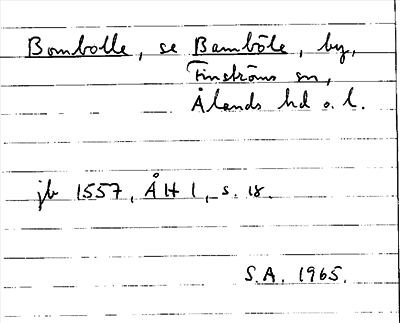 Bombolle, se Bamböle, by,
Finströms sn,
Ålands hd o. l.
jb 1557, ÅH 1, s. 18.
S.A. 1965.